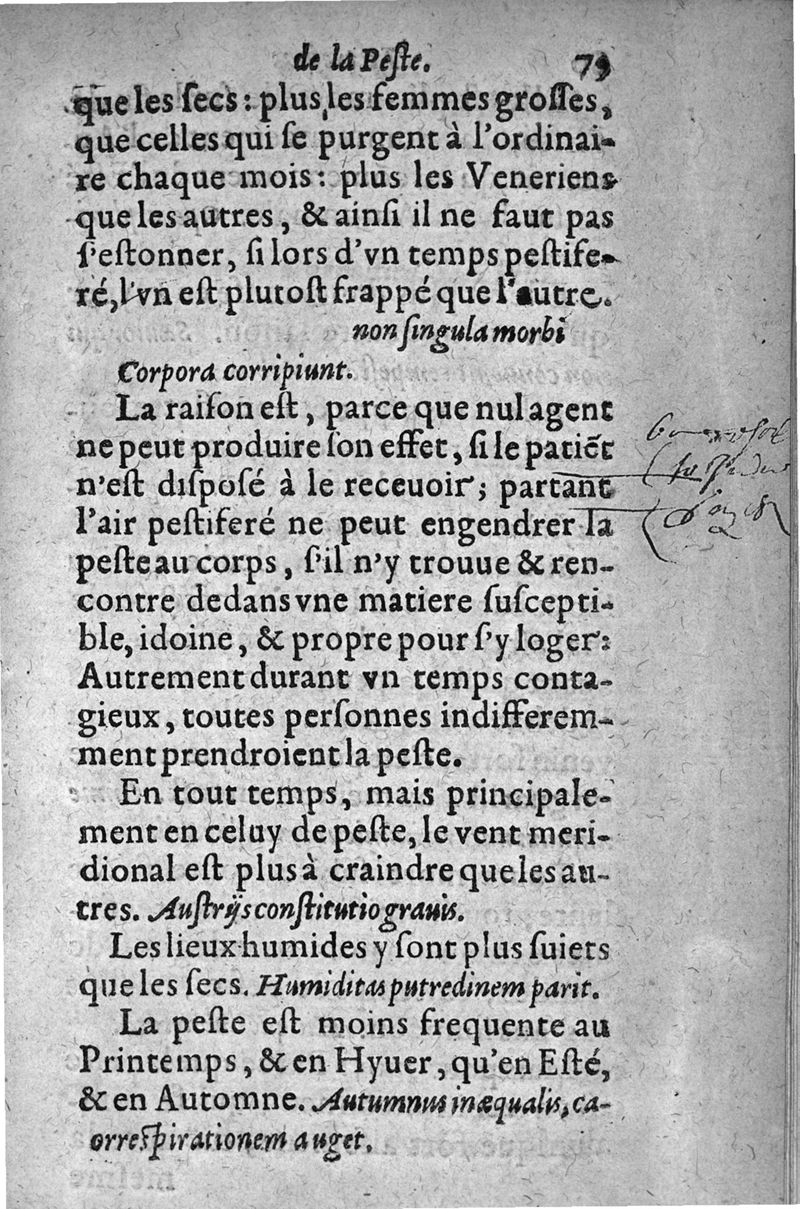 de la Peſte. 79
que les ſecs : plus les femmes groſſes,
que celles qui ſe purgent à l'ordinai-
re chaque mois : plus les Veneriens
que les autres, & ainſi il ne faut pas
ſ'eſtonner, ſi lors d'vn temps peſtife-
ré, l'vn eſt plutoſt frappé que l'autre.
non ſingula morbi
Corpora corripiunt.
La raiſon eſt, parce que nul agent
ne peut produire ſon effet, ſi le patiẽt
n'eſt diſpoſé à le receuoir; partant
l'air peſtiferé ne peut engendrer la
peſte au corps, ſ'il n'y trouue & ren-
contre dedans vne matiere ſuſcepti-
ble, idoine, & propre pour ſ'y loger:
Autrement durant vn temps conta-
gieux, toutes perſonnes indifferem-
ment prendroient la peſte.
En tout temps, mais principale-
ment en celuy de peſte, le vent meri-
dional eſt plus à craindre que les au-
tres. Auſtrijs conſtitutio grauis.
Les lieux humides y ſont plus ſuiets
que les ſecs. Humiditas putredinem parit.
La peſte eſt moins frequente au
Printemps, & en Hyuer, qu'en Eſté,
& en Automne. Autumnus inæqualis, ca-
orreſpirationem auget.